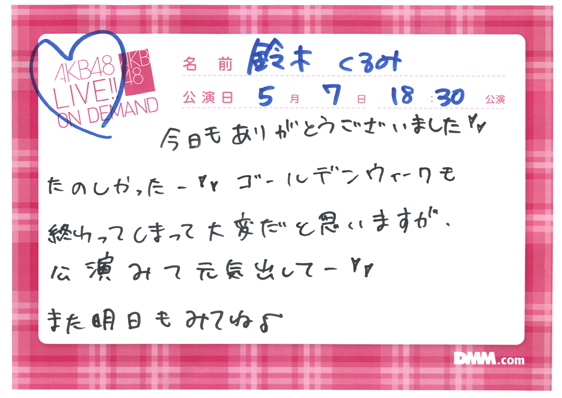 AKB48
LIVE!!
ON DEMAND
AKB
48
名前 鈴木 くるみ
公演日 5月 7日 18:30 公演
今日もありがとうございました♥
たのしかったー♥ ゴールデンウィークも
終わってしまって大変だと思いますが、
公演みて元気出してー♥
また明日もみてね♪
DMM.com